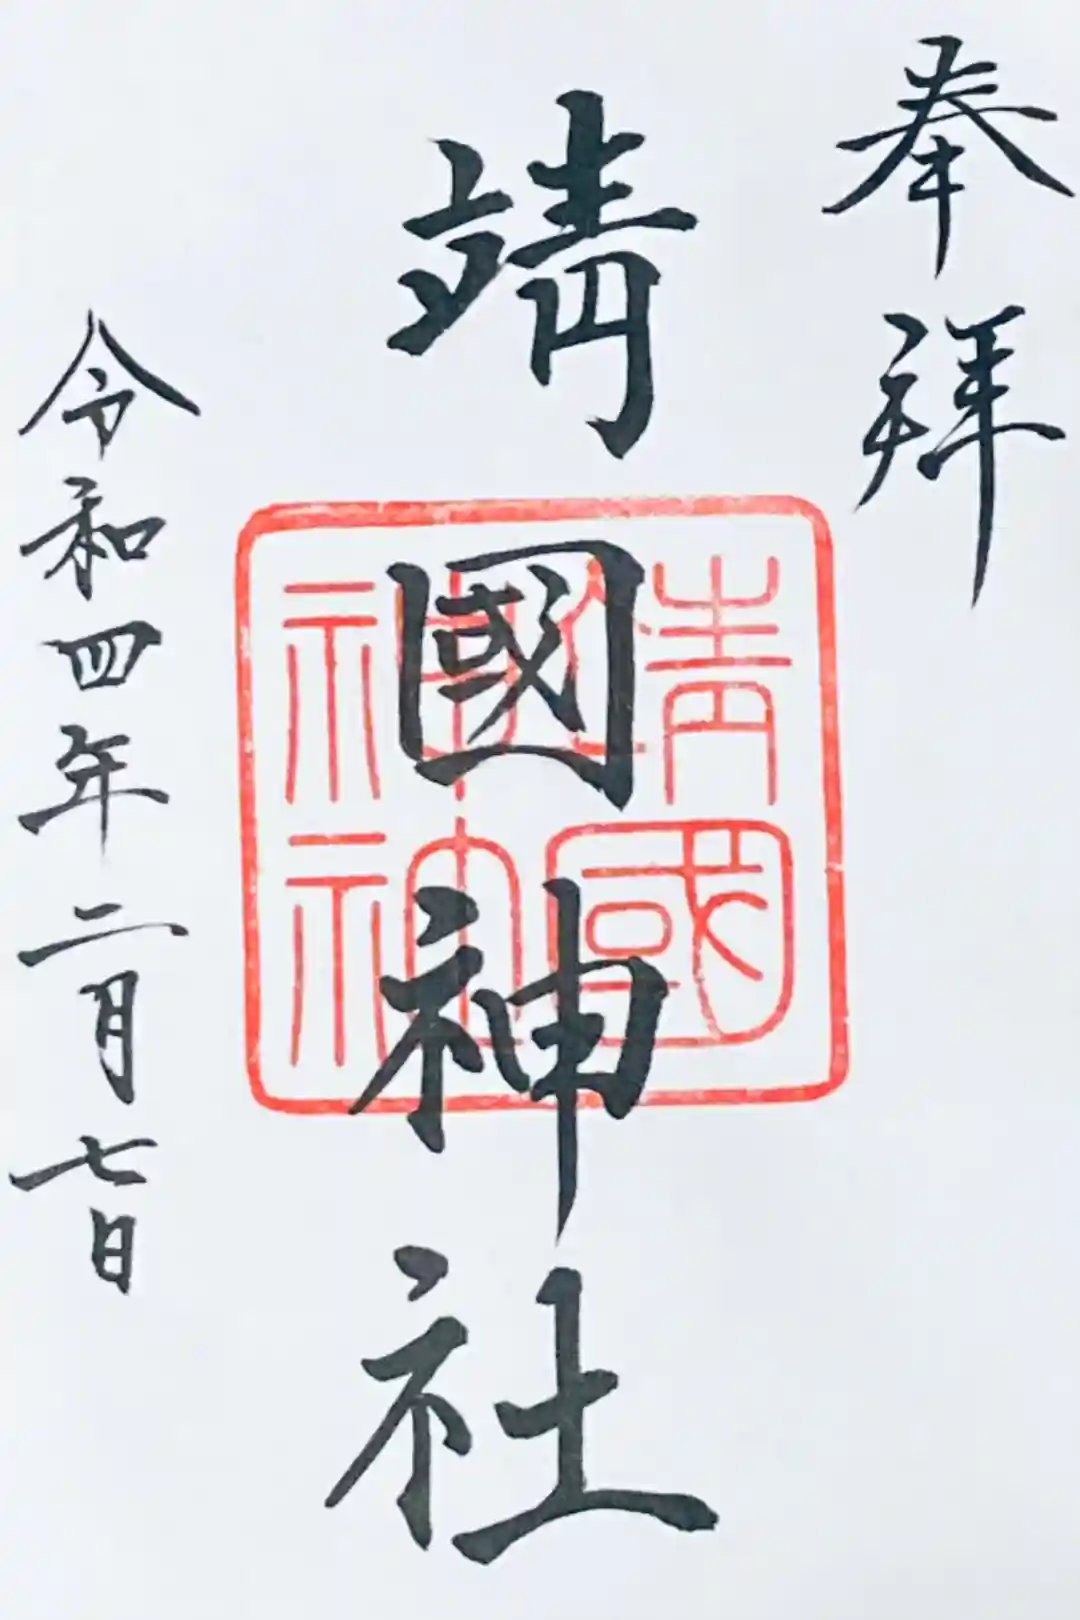 奉拜
靖國神社
靖國
神社
令和四年二月七日